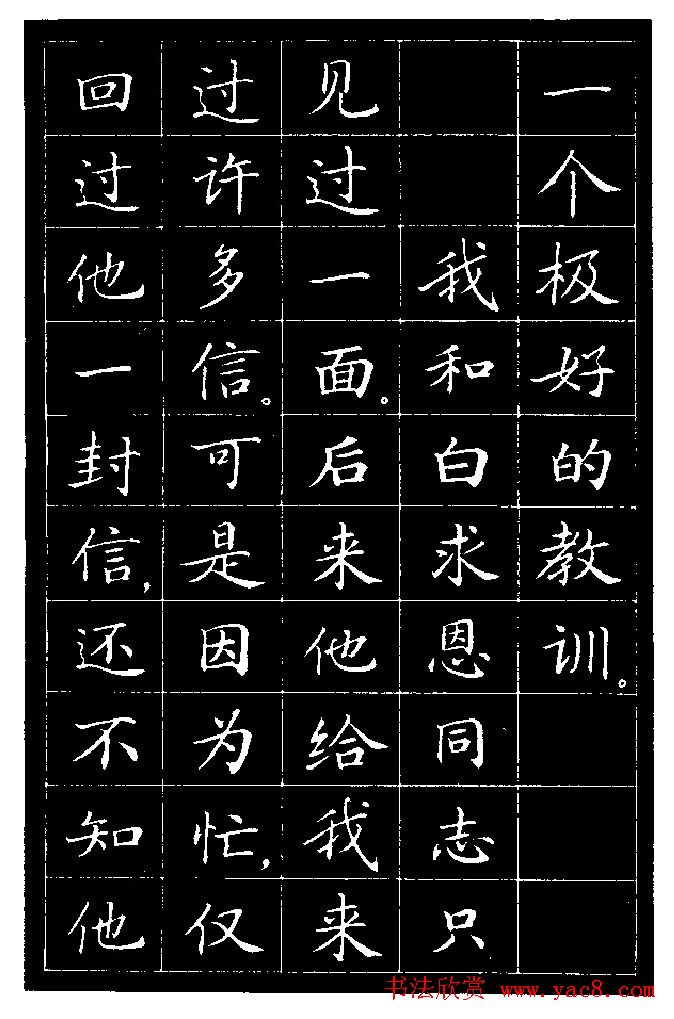 一个极好的教训。
我和白求恩同志只
见过一面。后来他给我来
过许多信。可是因为忙，仅
回过他一封信，还不知他
书法欣赏 www.yac8.com